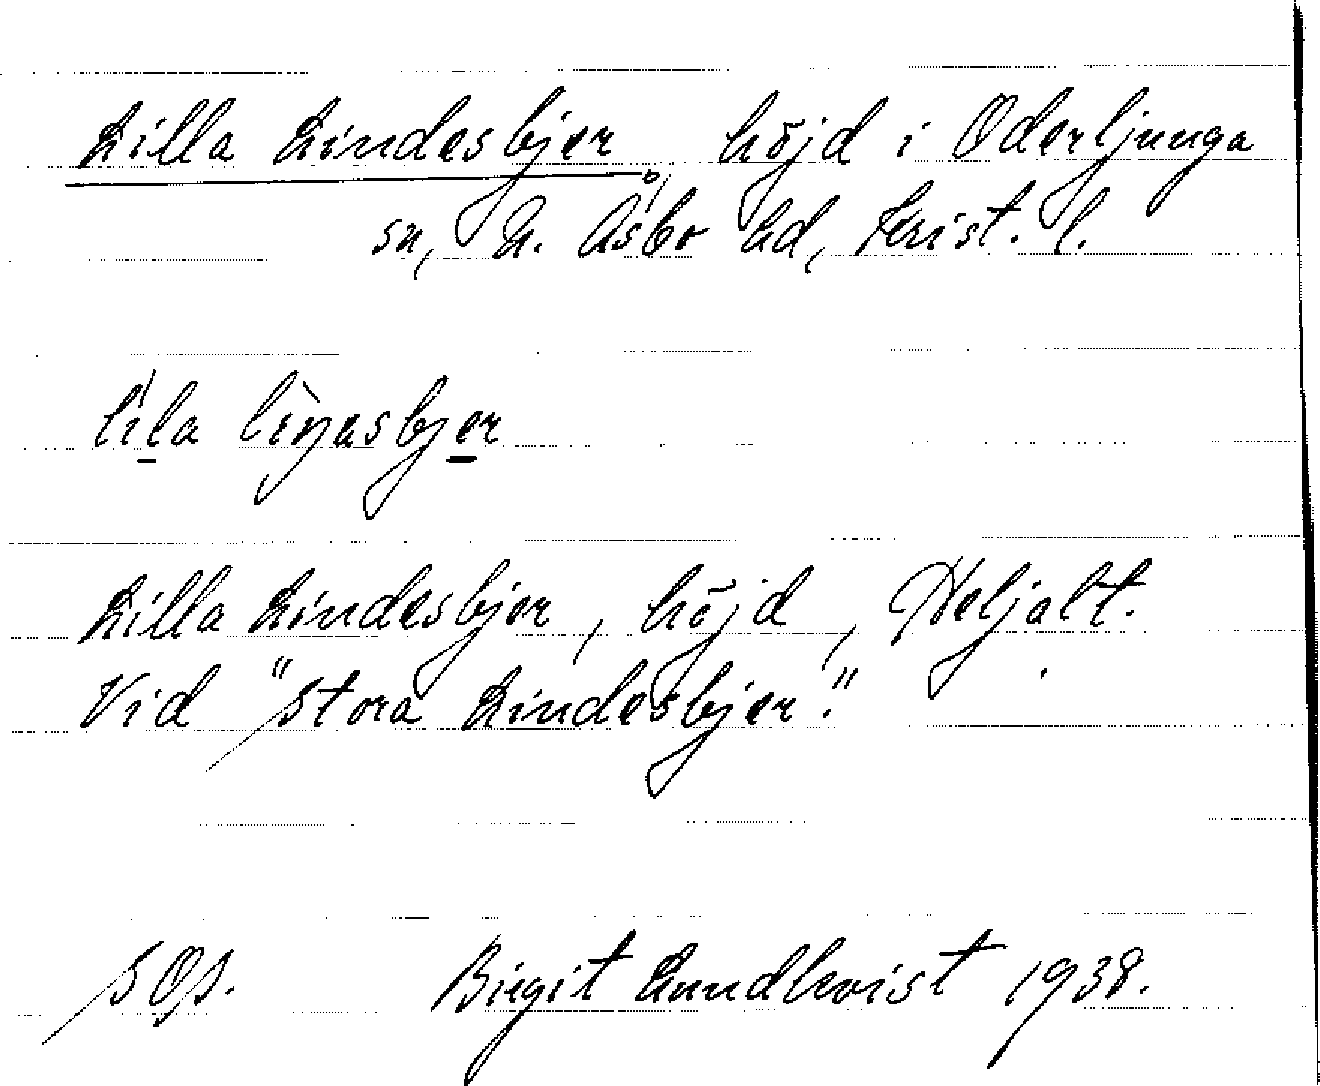 Lilla Lindesbjer, höjd i Oderljunga
sn, N. Åsbo hd, Krist. l.
líla lìŋasbjer
Lilla Lindesbjer, höjd, Heljalt.
Vid "Stora Lindesbjer".
SOp. Birgit Lundkvist 1938.